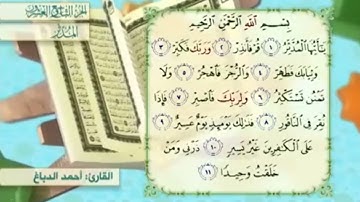 الجزء التاسع والعشرون
المدثر
بِسْمِ اللَّهِ الرَّحْمَٰنِ الرَّحِيمِ
يَا أَيُّهَا الْمُدَّثِّرُ ١ قُمْ فَأَنْذِرْ ٢ وَرَبَّكَ فَكَبِّرْ ٣
وَثِيَابَكَ فَطَهِّرْ ٤ وَالرُّجْزَ فَاهْجُرْ ٥ وَلَا
تَمْنُنْ تَسْتَكْثِرُ ٦ وَلِرَبِّكَ فَاصْبِرْ ٧ فَإِذَا
نُقِرَ فِي النَّاقُورِ ٨ فَذَٰلِكَ يَوْمَئِذٍ يَوْمٌ عَسِيرٌ ٩
عَلَى الْكَافِرِينَ غَيْرُ يَسِيرٍ ١٠ ذَرْنِي وَمَنْ
خَلَقْتُ وَحِيدًا ١١
القارئ: أحمد الدباغ